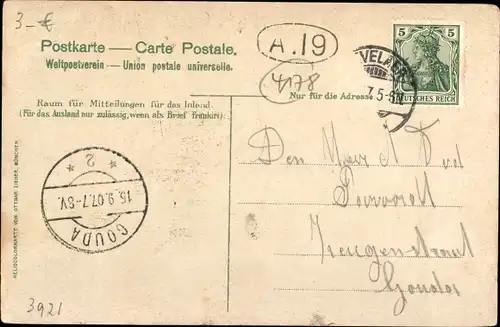 3_€
Postkarte — Carte Postale.
Weltpostverein — Union postale universelle.
A.19
4178
5 5
DEUTSCHES REICH
7.5-6
Nur für die Adresse
Raum für Mitteilungen für das Inland.
(Für das Ausland nur zulässig, wenn als Brief frankirt)
GOUDA
15.9.07.7-8V.
2
Den Heer A
Gouda
HELIOCOLORKARTE VON OTTMAR ZIEHER, MÜNCHEN
3921